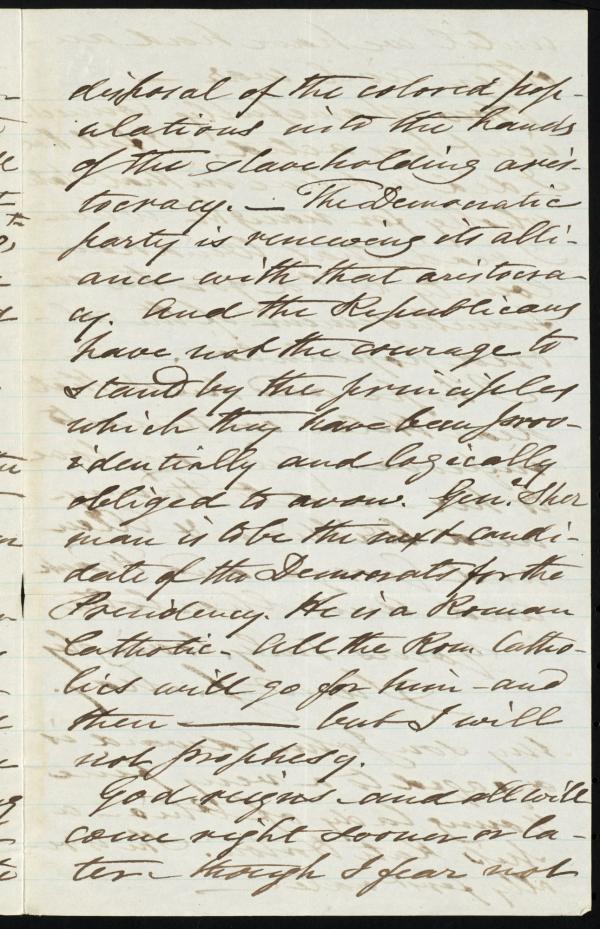 disposal of the colored pop-
ulations into the hands
of the slaveholding aris-
tocracy. — The Democratic
party is renewing its alli-
ance with that aristocra-
cy. And the Republicans
have not the courage to
stand by the principles
which they have been prov-
identially and logically
obliged to avow. Gen.l Sher
man is to be the next candi-
date of the Democrats for the
Presidency. He is a Roman
Catholic - All the Rom. Catho-
lics will go for him - and
then —— but I will
not prophesy.
God reigns - and all will
come right sooner or la-
ter - though I fear not